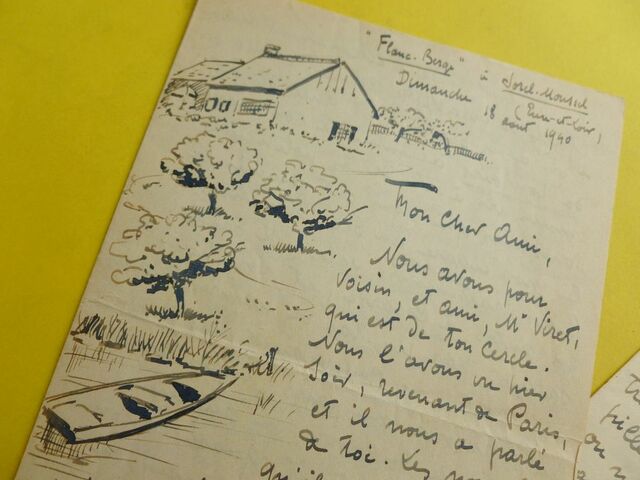 "Flanc-Berge" à Sorel-Moussel
(Eure-et-Loir)
Dimanche 18 août 1940
Mon cher Ami,
Nous avons pour
voisin, et ami, Mr Viret,
qui est de ton Cercle.
Nous l'avons vu hier
soir, revenant de Paris,
et il nous a parlé
de toi. Les
qu'il
pille